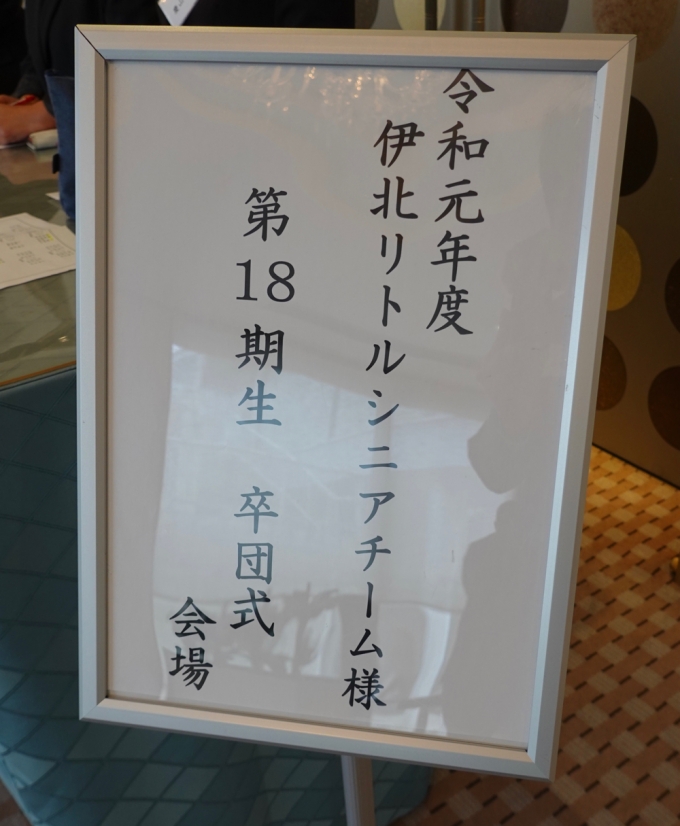 令和元年度
伊北リトルシニアチーム様
第18期生　卒団式
会場